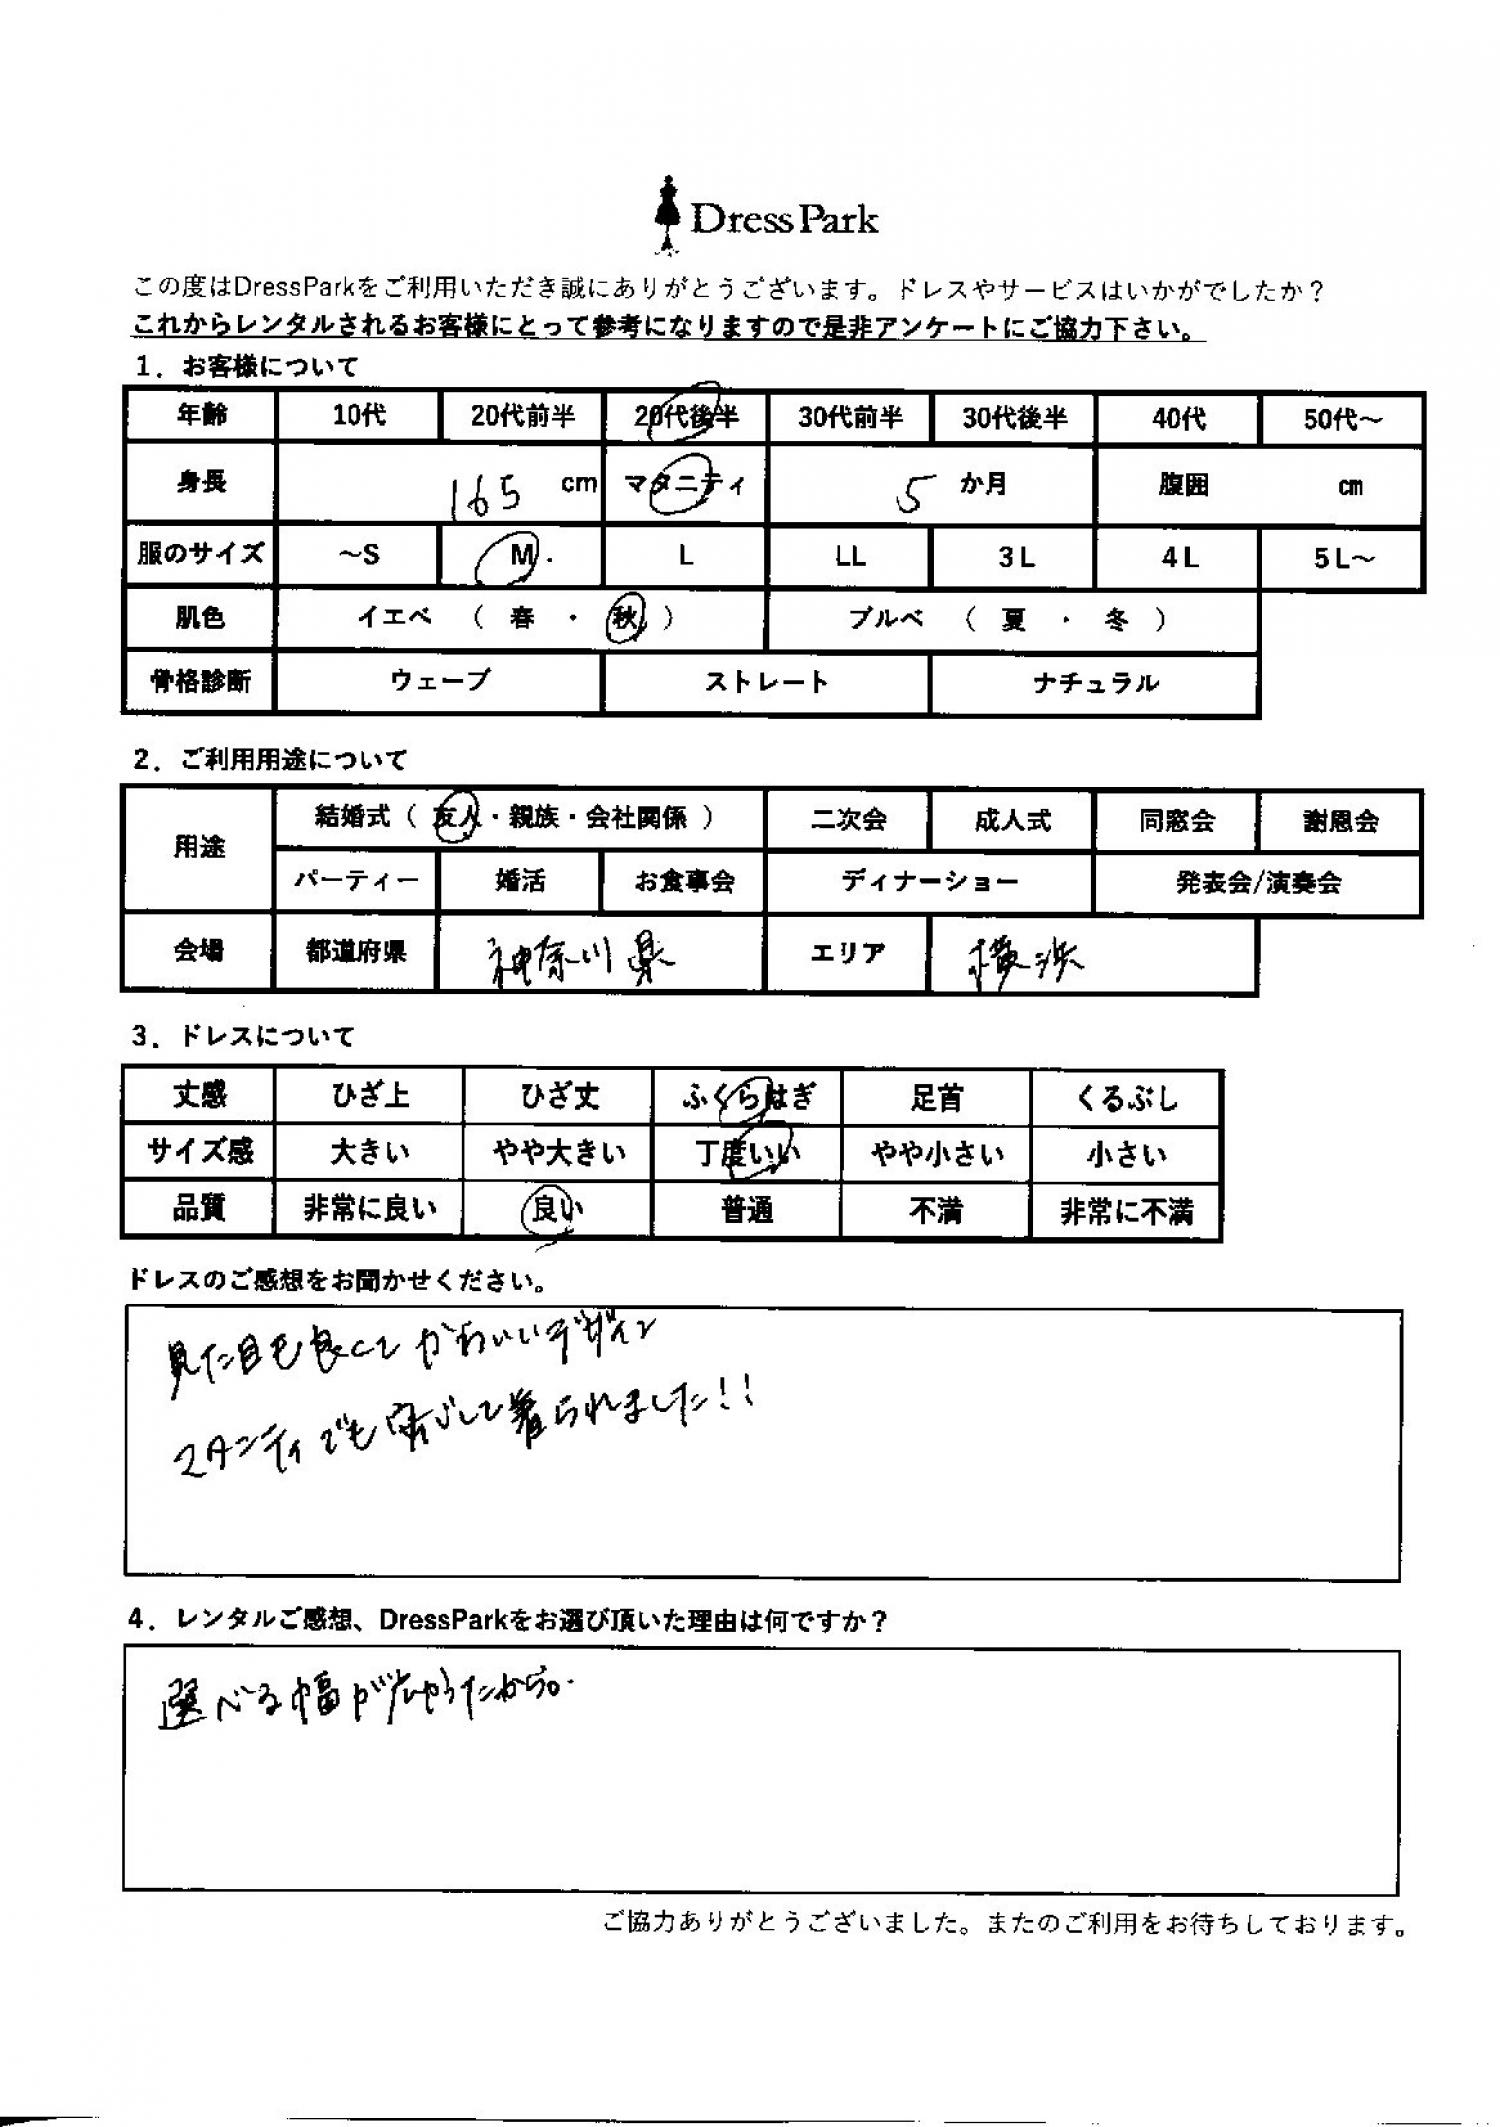 Dress Park
この度はDressParkをご利用いただき誠にありがとうございます。ドレスやサービスはいかがでしたか？
これからレンタルされるお客様にとって参考になりますので是非アンケートにご協力下さい。
1．お客様について
年齢 10代 20代前半 20代後半 30代前半 30代後半 40代 50代～
身長 165 cm マタニティ 5 か月 腹囲 cm
服のサイズ ～S M . L LL 3L 4L 5L～
肌色 イエベ （ 春 ・ 秋 ） ブルベ （ 夏 ・ 冬 ）
骨格診断 ウェーブ ストレート ナチュラル
2．ご利用用途について
用途 結婚式（ 友人・親族・会社関係 ） 二次会 成人式 同窓会 謝恩会
パーティー 婚活 お食事会 ディナーショー 発表会/演奏会
会場 都道府県 神奈川県 エリア 横浜
3．ドレスについて
丈感 ひざ上 ひざ丈 ふくらはぎ 足首 くるぶし
サイズ感 大きい やや大きい 丁度いい やや小さい 小さい
品質 非常に良い 良い 普通 不満 非常に不満
ドレスのご感想をお聞かせください。
見た目も良くて かわいいデザイン
マタニティでも 安心して着られました!!
4．レンタルご感想、DressParkをお選び頂いた理由は何ですか？
選べる幅が広かったから。
ご協力ありがとうございました。またのご利用をお待ちしております。